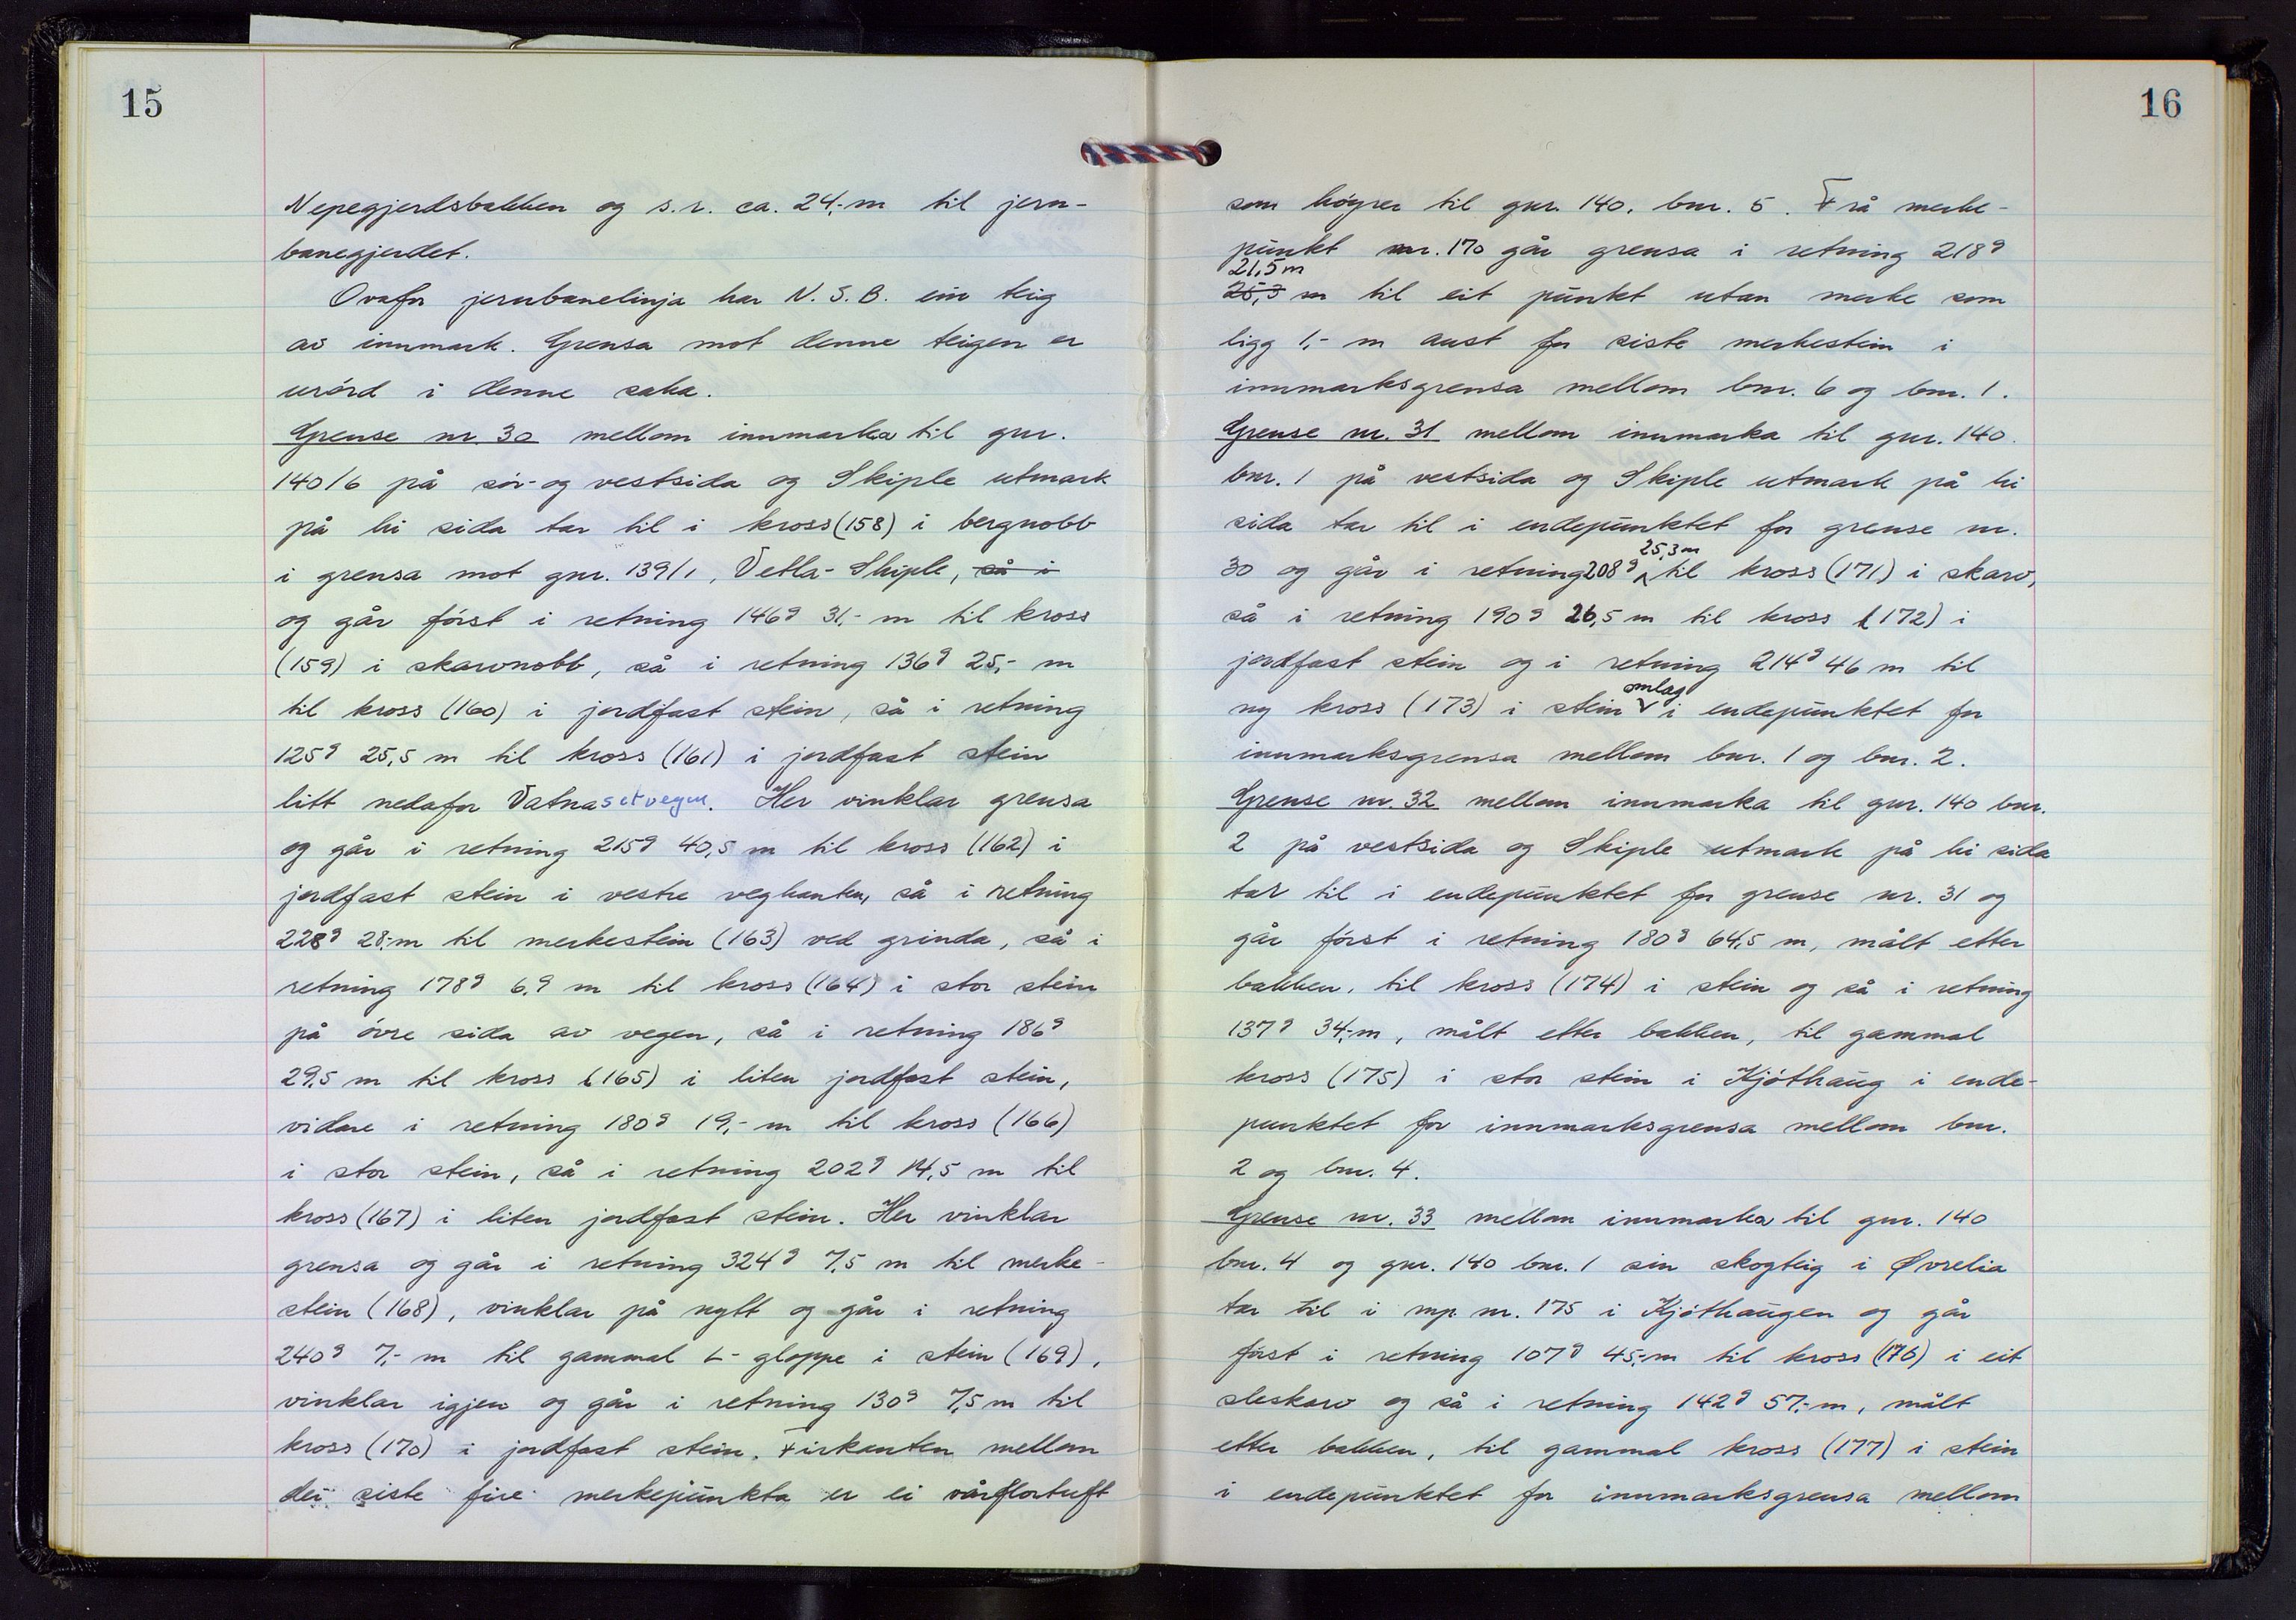 15
Nepegjerdsbakken og s.r. ca. 24,- m til jern-
banegjerdet.
Ovafor jernbanelinja har N.S.B. ein teig
av innmark. Grensa mot denne teigen er
urörd i denne saka.
Grense nr. 30 mellom innmarka til gnr.
140/6 på sör- og vestsida og Skiple utmark
på hi sida tar til i kross (158) i bergnobb
i grensa mot gnr. 139/1, Vetla-Skiple, så i
og går först i retning 146g 31,- m til kross
(159) i skarvnobb, så i retning 136g 25,- m
til kross (160) i jordfast stein, så i retning
125g 25,5 m til kross (161) i jordfast stein
litt nedafor Vatnasetvegen. Her vinklar grensa
og går i retning 215g 40,5 m til kross (162) i
jordfast stein i vestre vegkanten, så i retning
228g 28,- m til merkestein (163) ved grinda, så i
retning 178g 6,9 m til kross (164) i stor stein
på övre sida av vegen, så i retning 186g
29,5 m til kross (165) i liten jordfast stein,
vidare i retning 180g 19,- m til kross (166)
i stor stein, så i retning 202g 14,5 m til
kross (167) i liten jordfast stein. Her vinklar
grensa og går i retning 324g 7,5 m til merke-
stein (168), vinklar på nytt og går i retning
240g 7,- m til gammal L- gloppe i stein (169),
vinklar igjen og går i retning 130g 7,5 m til
kross (170) i jordfast stein. Firkanten mellom
dei siste fire merkepunkta er ei vårflortuft
16
som höyrer til gnr. 140, bnr. 5. Frå merke-
punkt nr. 170 går grensa i retning 218g
21,5 m
25,3 m til eit punkt utan merke som
ligg 1,- m aust for siste merkestein i
innmarksgrensa mellom bnr. 6 og bnr. 1.
Grense nr. 31 mellom innmarka til gnr. 140.
bnr. 1 på vestsida og Skiple utmark på hi
sida tar til i endepunktet for grense nr.
25,3 m
30 og går i retning 208g til kross (171) i skarv,
så i retning 190g 26,5 m til kross (172) i
jordfast stein og i retning 214g 46 m til
omlag
ny kross (173) i stein i endepunktet for
innmarksgrensa mellom bnr. 1 og bnr. 2.
Grense nr. 32 mellom innmarka til gnr. 140 bnr.
2 på vestsida og Skiple utmark på hi sida
tar til i endepunktet for grense nr. 31 og
går först i retning 180g 64,5 m, målt etter
bakken, til kross (174) i stein og så i retning
137g 34,- m, målt etter bakken, til gammal
kross (175) i stor stein i Kjöthaug i ende-
punktet for innmarksgrensa mellom bnr.
2 og bnr. 4.
Grense nr. 33 mellom innmarka til gnr. 140
bnr. 4 og gnr. 140 bnr. 1 sin skogteig i Øvrelia
tar til i mp nr. 175 i Kjöthaugen og går
först i retning 107g 45,- m til kross (176) i eit
sleskarv og så i retning 142g 57,- m, målt
etter bakken, til gammal kross (177) i stein
i endepunktet for innmarksgrensa mellom